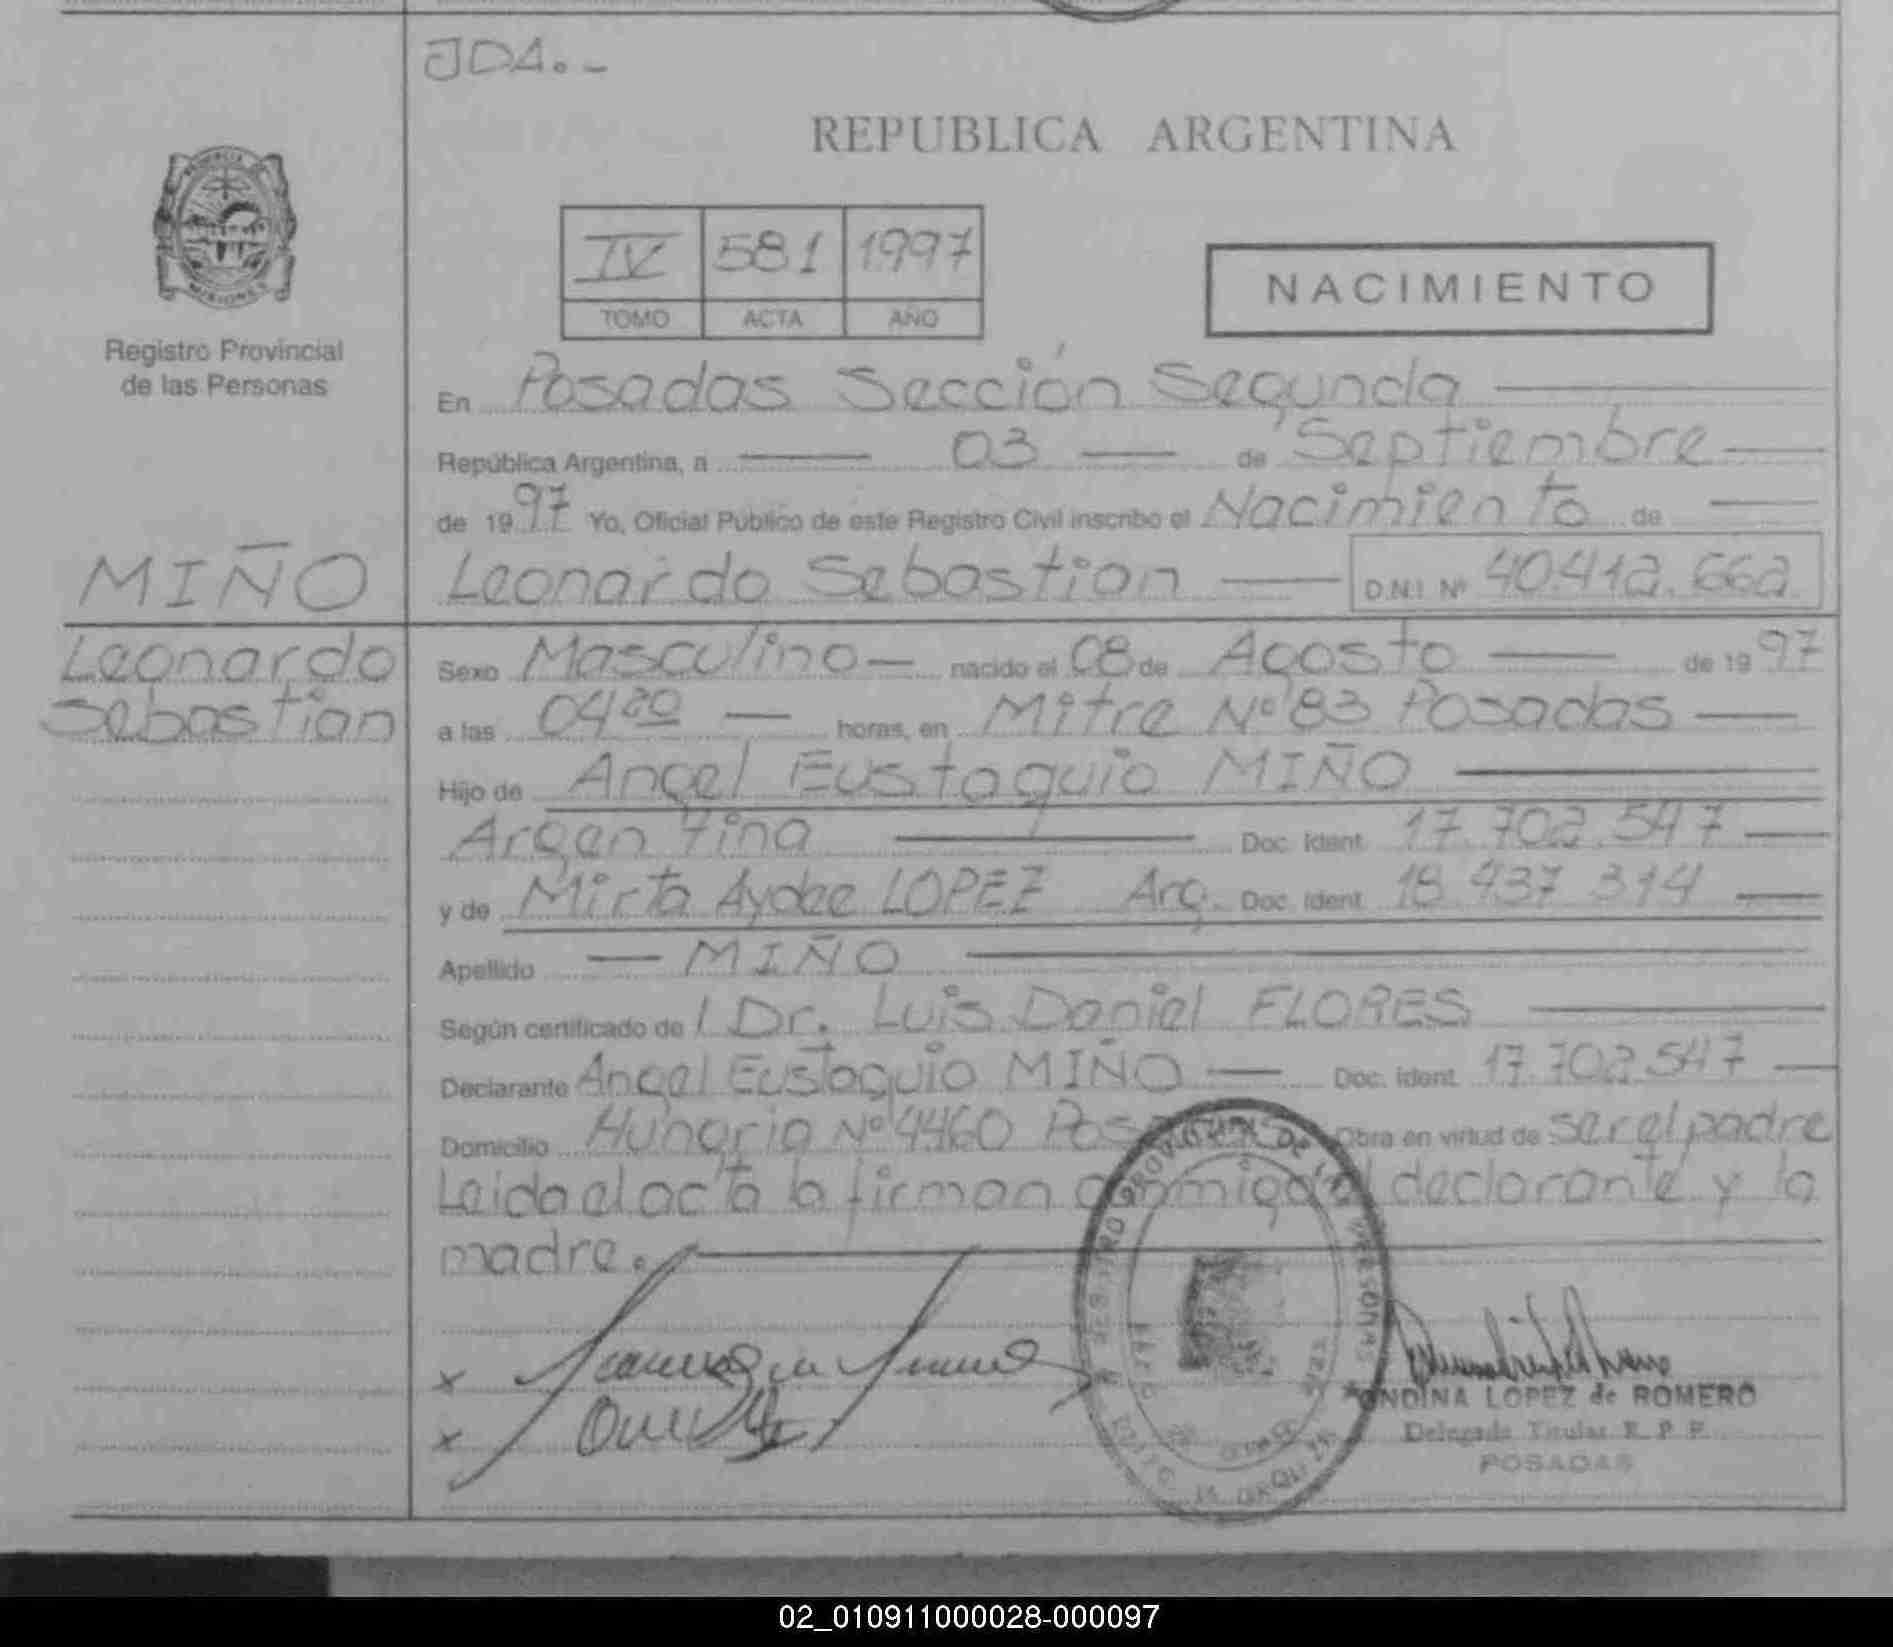 JDA.-
REPUBLICA ARGENTINA
IV 581 1997
TOMO ACTA AÑO
NACIMIENTO
MISIONES
Registro Provincial
de las Personas
En Posadas Sección Segunda
República Argentina, a 03 de Septiembre
de 1997 Yo, Oficial Público de este Registro Civil inscribo el Nacimiento de
MIÑO
Leonardo Sebastian D.N.I. Nº 40.412.662
Leonardo
Sebastian
Sexo Masculino nacido el 08 de Agosto de 1997
a las 04 horas, en Mitre Nº 83 Posadas
Hijo de Angel Eustaquio MIÑO
Argentina Doc. Ident. 17.702.547
y de Mirta Aydee LOPEZ Arg. Doc. Ident. 18.437.314
Apellido MIÑO
Según certificado de Dr. Luis Daniel FLORES
Declarante Angel Eustaquio MIÑO Doc. Ident. 17.702.547
Domicilio Hungria Nº 4460 Obra en virtud de ser el padre
Leida el acta la firman conmigo el declarante y la
madre.
x
x
ONDINA LOPEZ de ROMERO
Delegada Titular R. P. P.
POSADAS
02_010911000028-000097